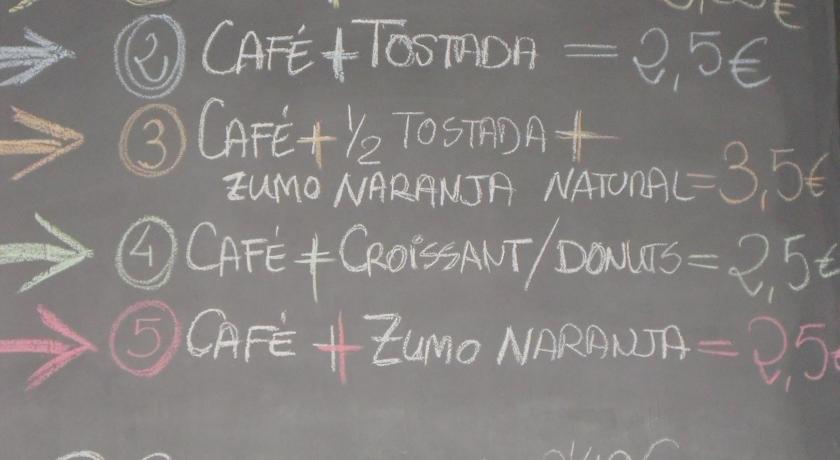 2 CAFÉ + TOSTADA = 2,5€
3 CAFÉ + 1/2 TOSTADA +
ZUMO NARANJA NATURAL = 3,5€
4 CAFÉ + CROISSANT/DONUTS = 2,5€
5 CAFÉ + ZUMO NARANJA = 2,5€